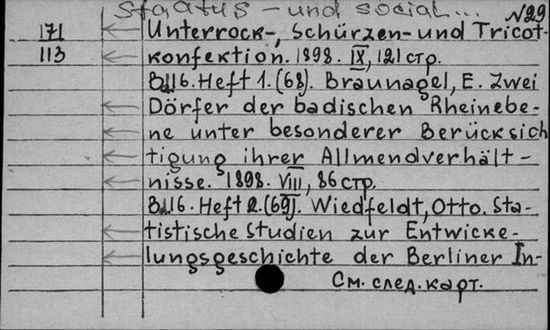 Staatus - und social... N29
171 Unterrock-, Schürzen- und Tricot-
113 konfektion. 1898. IX, 121 стр.
Bd16. Heft 1. (68). Braunagel, E. Zwei
Dörfer der badischen Rheinebe-
ne unter besonderer Berücksich
tigung ihrer Allmendverhält-
nisse. 1898. VIII, 86 стр.
Bd16. Heft 2. (69). Wiedfeldt, Otto. Sta-
tistische Studien zur Entwicke-
lungsgeschichte der Berliner In-
См. след. карт.